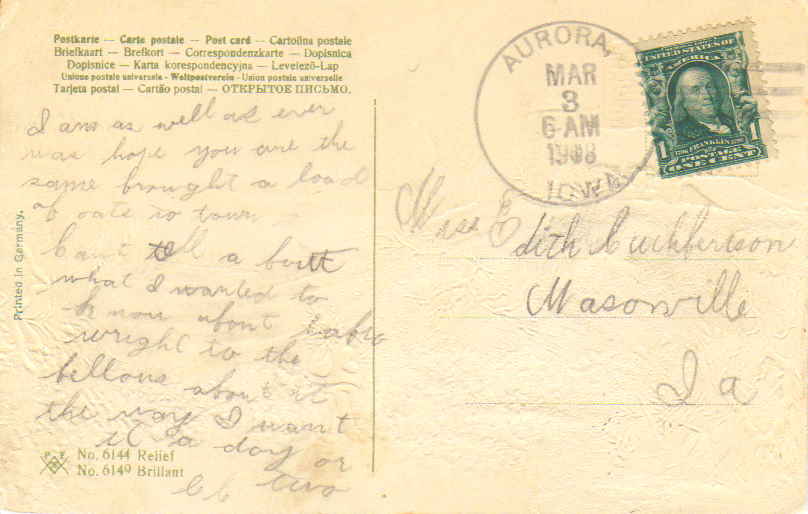 Postkarte — Carte postale — Post card — Cartolina postale
Briefkaart — Brefkort — Correspondenzkarte — Dopisnica
Dopisnice — Karta korespondencyjna — Levelező-Lap
Unione postale universale - Weltpostverein - Union postale universelle
Tarjeta postal — Cartão postal — ОТКРЫТОЕ ПИСЬМО.
I am as well as ever
was hope you are the
same brought a load
of oats to town
Cant tell a butt
what I wanted to
know about
wright to the
fellows about it
the way I want
it a day or
two
Printed in Germany.
No. 6144 Relief
No. 6149 Brillant
AURORA,
MAR
3
6-AM
1908
IOWA
UNITED STATES OF
AMERICA
1706 FRANKLIN 1790
1 POSTAGE 1
ONE CENT
Miss Edith Cuthbertson
Masonville
Ia